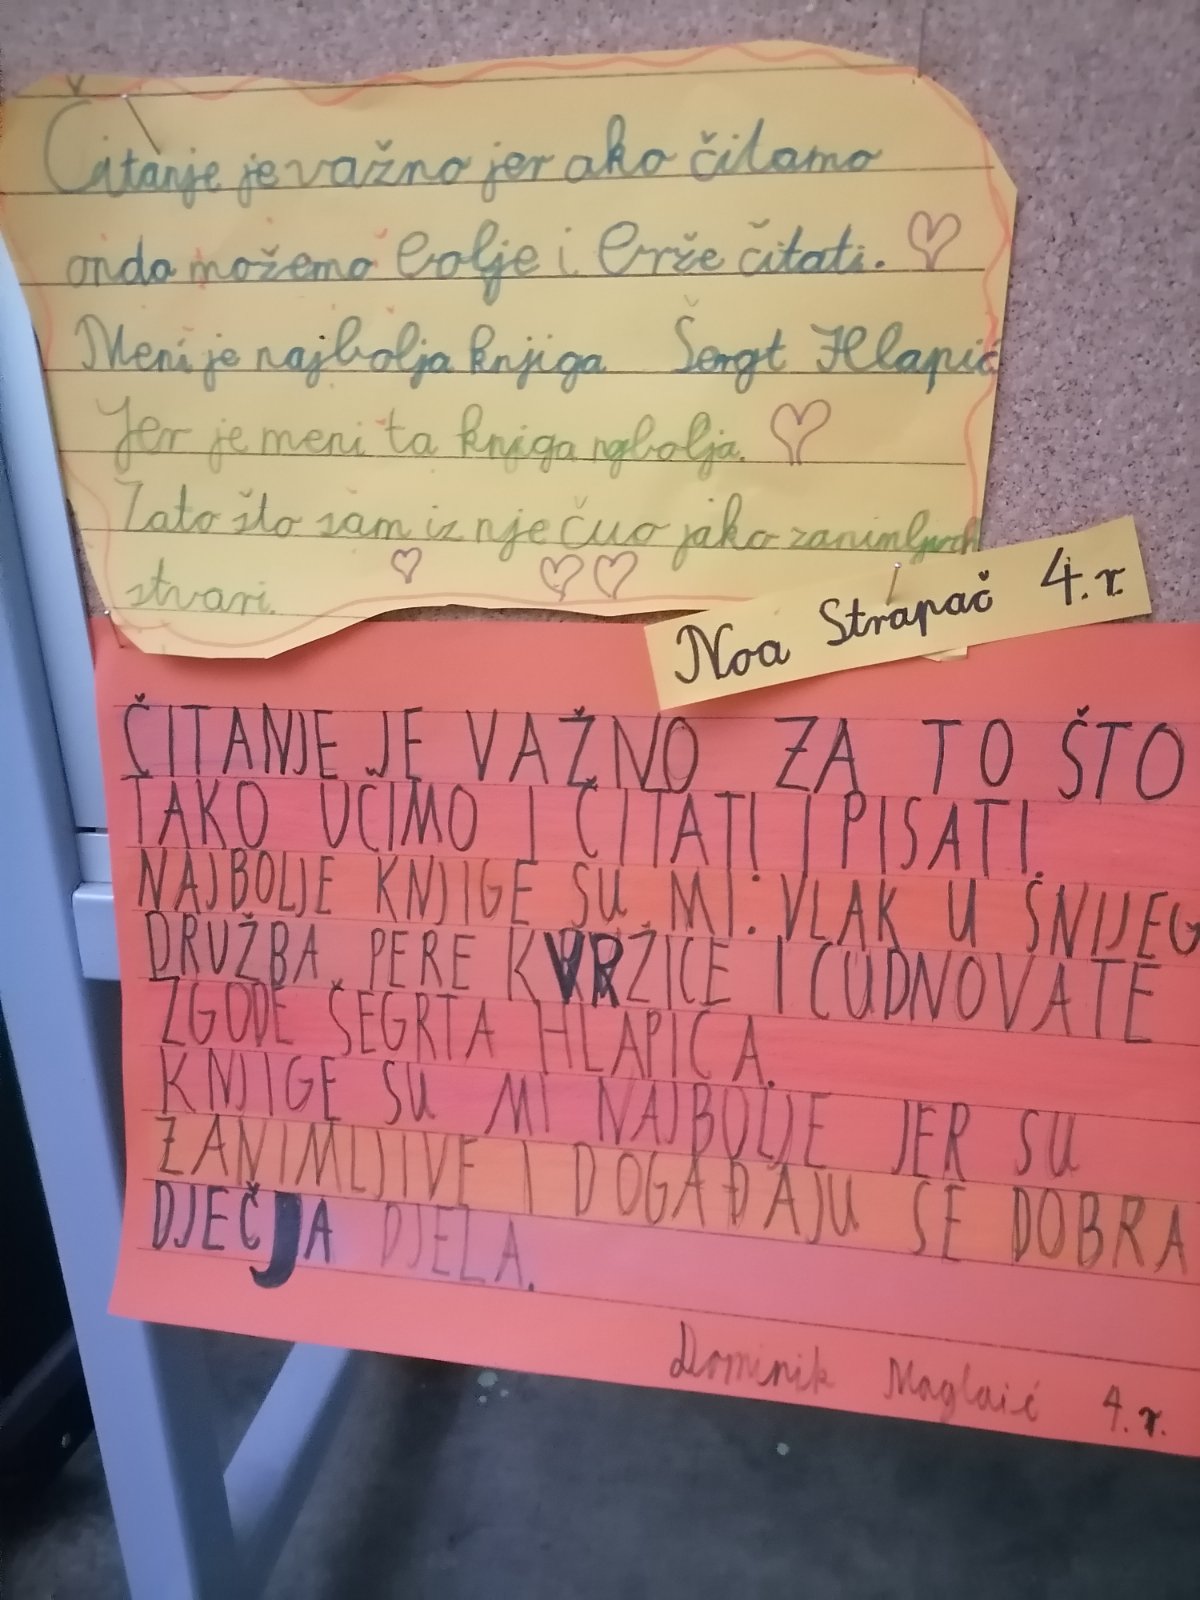 Čitanje je važno jer ako čitamo
onda možemo bolje i brže čitati.
Meni je najbolja knjiga Šergt Hlapić
Jer je meni ta knjiga najbolja.
Zato što sam iz nje čuo jako zanimljivih
stvari.
Noa Strapač 4.r.
ČITANJE JE VAŽNO ZA TO ŠTO
TAKO UČIMO I ČITATI I PISATI.
NAJBOLJE KNJIGE SU MI: VLAK U SNIJEG
DRUŽBA PERE KVRŽICE I ČUDNOVATE
ZGODE ŠEGRTA HLAPIĆA.
KNJIGE SU MI NAJBOLJE JER SU
ZANIMLJIVE I DOGAĐAJU SE DOBRA
DJEČJA DJELA.
Dominik 4.r.